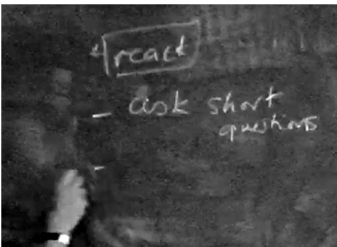 react
- ask short
questions
-